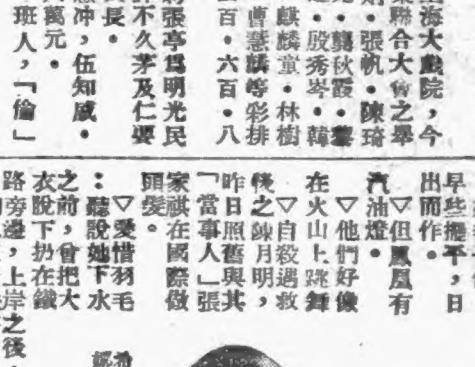 海大戲院，今
聯合大會之舉
張帆・陳琦
龔秋霞・
・殷秀岑・韓
麒麟童・林樹
曹慧麟等彩排
百・六百・八
張亭爲明光民
不久茅及仁要
長。
冲，伍知威。
萬元。
班人，「倫」
早些擺平，日
出而作。
▽但鳳凰有
汽油燈。
▽他們好像
在火山上跳舞
▽自殺遇救
後之陳月明，
昨日照舊與其
「當事人」張
家祺在國際做
頭髮。
▽愛惜羽毛
：聽說她下水
之前，曾把大
衣脫下扔在鐵
路旁邊，上岸之後，